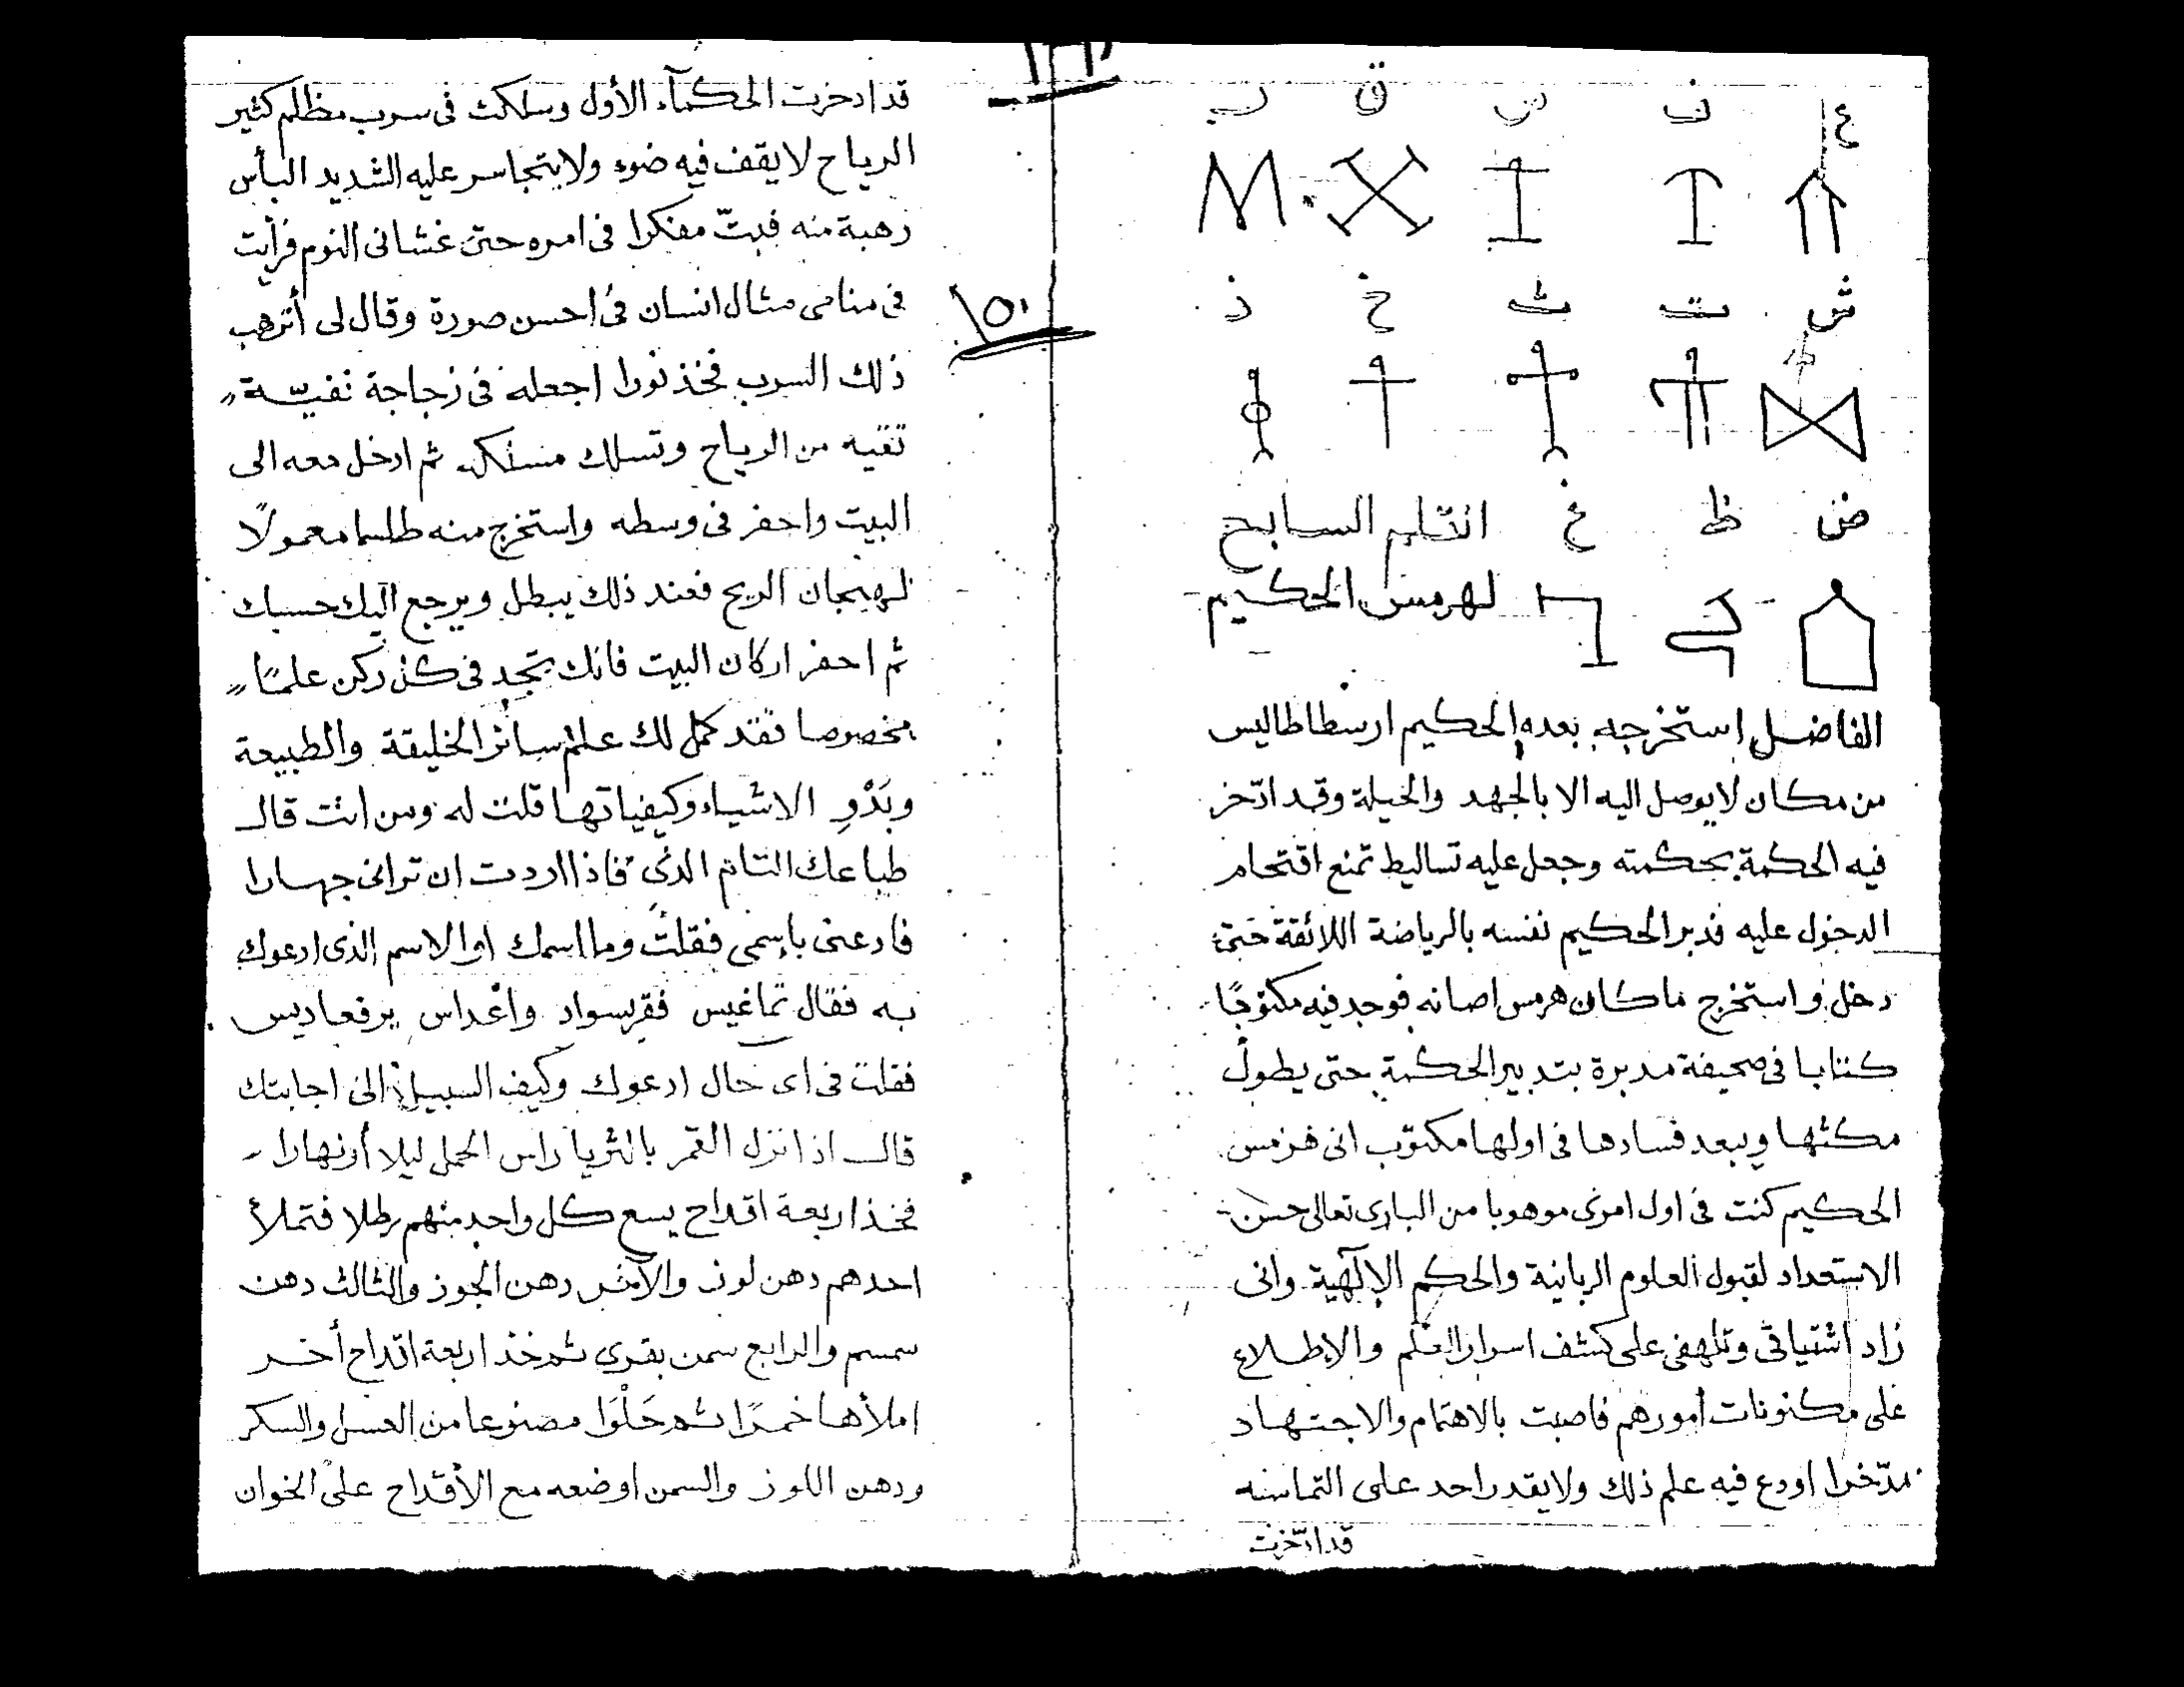 ع ف ص ق ر
ش ت ث خ ذ
ض ظ غ القلم السابع
لهرمس الحكيم
الفاضل استخرجه بعده الحكيم ارسطاطاليس
من مكان لايوصل اليه الا بالجهد والحيلة وقد ادّخر
فيه الحكمة بحكمته وجعل عليه تساليط تمنع اقتحام
الدخول عليه فدبر الحكيم نفسه بالرياضة اللائقة حتى
دخل واستخرج ماكان هرمس اصانه فوجد فيه مكتوبًا
كتابا فى صحيفة مدبرة بتدبير الحكمة حتى يطول
مكثها ويبعد فسادها فى اولها مكتوب انى هرمس
الحكيم كنت فى اول امرى موهوبا من البارى تعالى حسن
الاستعداد لقبول العلوم الربانية والحكم الإلٓهية وانى
زاد اشتياقى وتلهفى على كشف اسرار العلم والإطلاع
على مكنونات أمورهم فاصبت بالاهتمام والاجتهاد
مدّخرا اودع فيه علم ذلك ولايقدر احد على التماسه
قد ادّخرت
قد ادخرت الحكمآء الأول وسلكت فى سرب مظلم كثير
الرياح لا يقف فيه ضوء ولا يتجاسر عليه الشديد البأس
رهبة منه فبتّ مفكرا فى امره حتى غشانى النوم فرأيت
فى منامى مثال انسان فى احسن صورة وقال لى أترهب
ذلك السرب فخذ نورا اجعله فى زجاجة نقيّة
تقيه من الرياح وتسلك مسلكه ثم ادخل معه الى
البيت واحفر فى وسطه واستخرج منه طلسما معمولًا
لهيجان الريح فعند ذلك يبطل ويرجع اليك حسبك
ثم احفر اركان البيت فانك تجد فى كل ركن علمًا
مخصوصا فقد كمل لك علم سائر الخليقة والطبيعة
وبَدْوِ الاشياء وكيفياتها قلت له ومن انت قال
طباعك التام الذى فاذا اردت ان ترانى جهارا
فادعنى باسمى فقلت وما اسمك او الاسم الذى ادعوك
به فقال تماغيس فقريسواد واغداس يرفعاديس
فقلت فى اى حال ادعوك وكيف السبيل الى اجابتك
قال اذا نزل القمر بالثريا راس الحمل ليلا أو نهارا
فخذ اربعة اقداح يسع كل واحد منهم رطلا فتملأ
احدهم دهن لوز والآخر دهن الجوز والثالث دهن
سمسم والرابع سمن بقرى ثم خذ اربعة اقداح أخر
املأها خمرًا ثم حَلْوَا مصنوعا من العسل والسكر
ودهن اللوز والسمن اوضعه مع الأقداح على الخوان